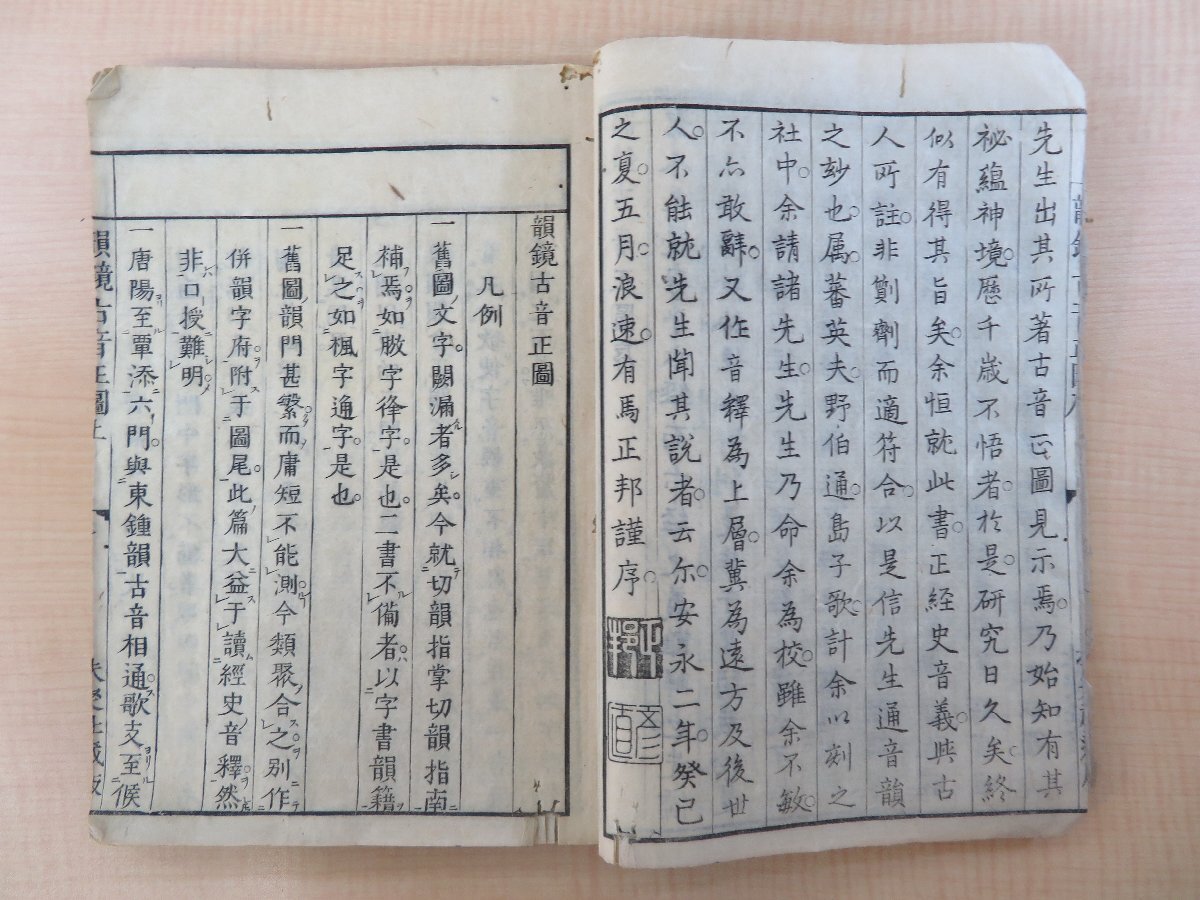 先生出其所著古音正圖見示焉乃始知有其
祕蘊神境歷千歲不悟者於是研究日久矣終
似有得其旨矣余恒就此書正經史音義與古
人所註非劑而適符合以是信先生通音韻
之玅也属蕃英夫野伯通島子歌計余以刻之
社中余請諸先生先生乃命余為校雖余不敏
不亦敢辭又作音釋為上層冀為遠方及後世
人不能就先生聞其說者云尔安永二年癸巳
之夏五月浪速有馬正邦謹序
韻鏡古音正圖
凡例
一舊圖文字闕漏者多矣今就切韻指掌切韻指南
補焉如字字是也二書不備者以字書韻籍
足之如楓字逋字是也
一舊圖韻門甚繁而庸短不能測今類聚合之別作
併韻字府附于圖尾此篇大益于讀經史音釋然
非口授難明
一唐陽至覃添六門與東鍾韻古音相通歌支至候
韻鏡古音正圖